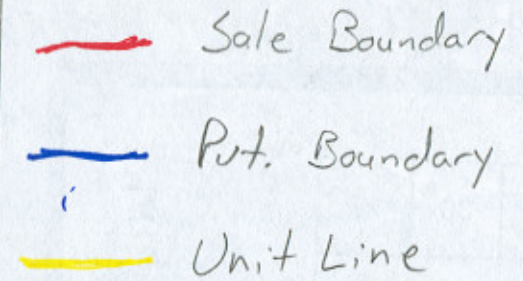 Sale Boundary
Pvt. Boundary
Unit Line